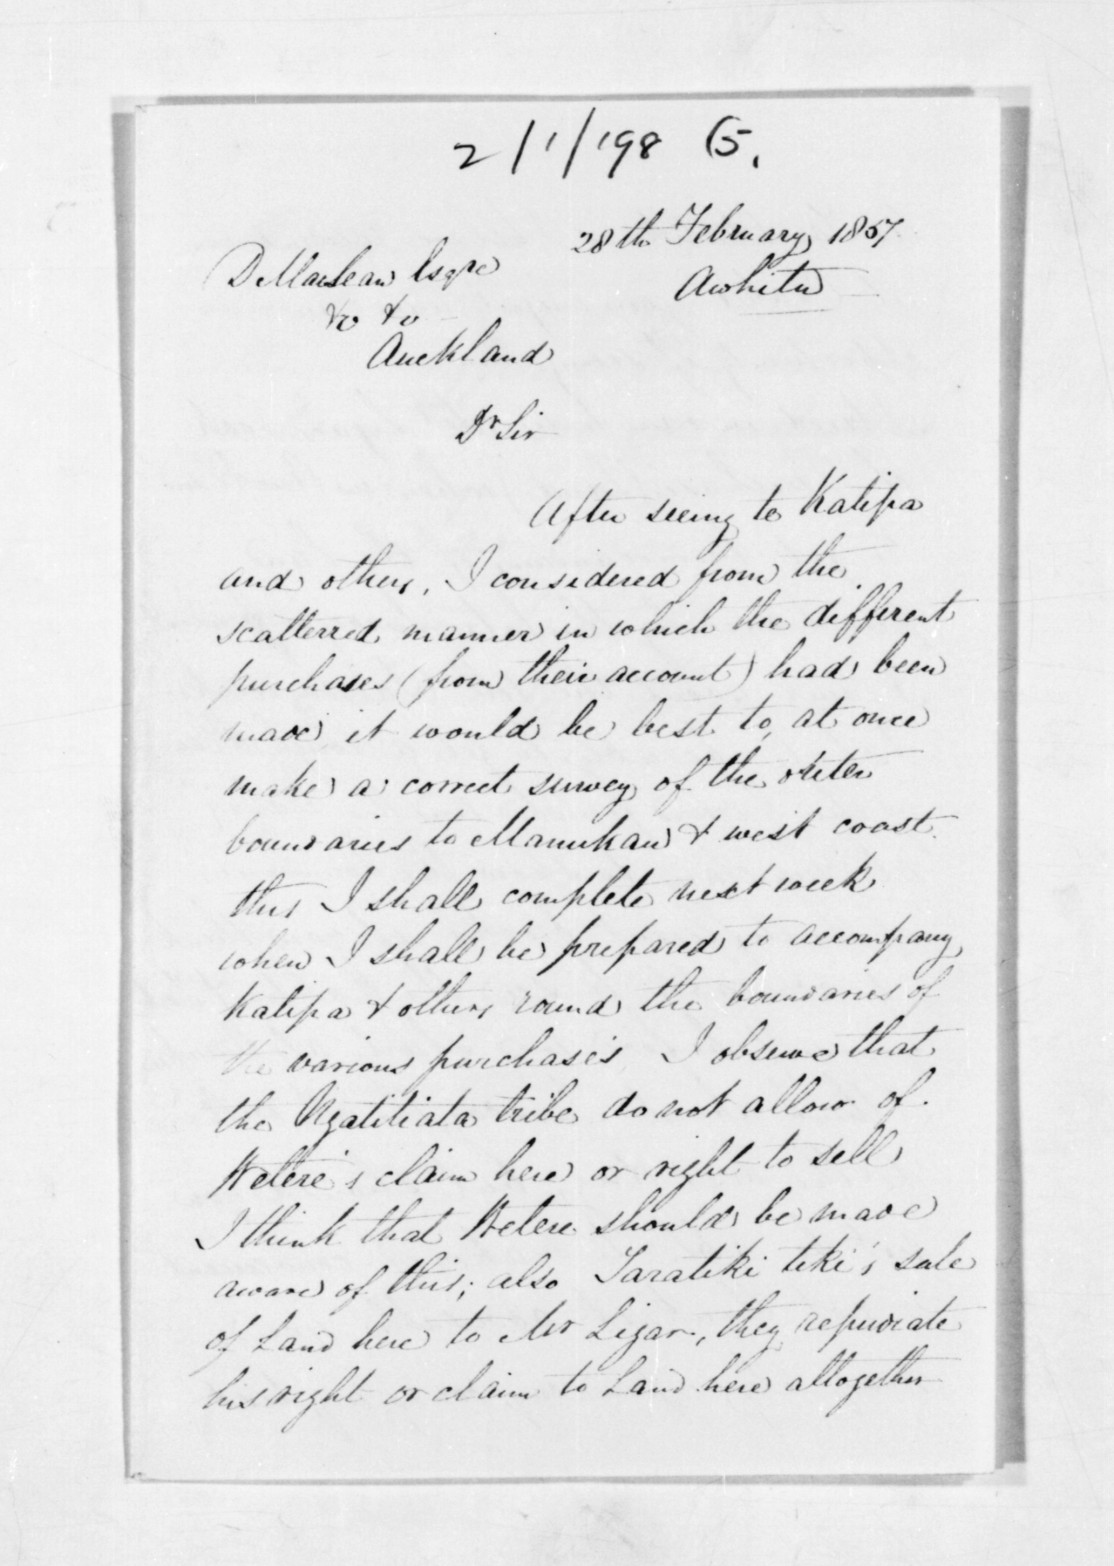 2/1/198 (5.
28th February, 1857
Awhitu
D Maclean Esqre
&c &c
Auckland
Dr Sir
After seeing te Katipa
and others, I considered from the
scatterred manner in which the different
purchases (from their account) had been
made it would be best to, at once
make a correct survey of the outer
boundaries to Manukau & west coast.
this I shall complete next week
when I shall be prepared to accompany
Katipa & others round the boundaries of
the various purchases I observe that
the Ngatitiata tribe do not allow of
Wetere's claim here or right to sell
I think that Wetere should be made
aware of this; also Taratikitiki's sale
of Land here to Mr Ligar, they repudiate
his right or claim to Land here altogether